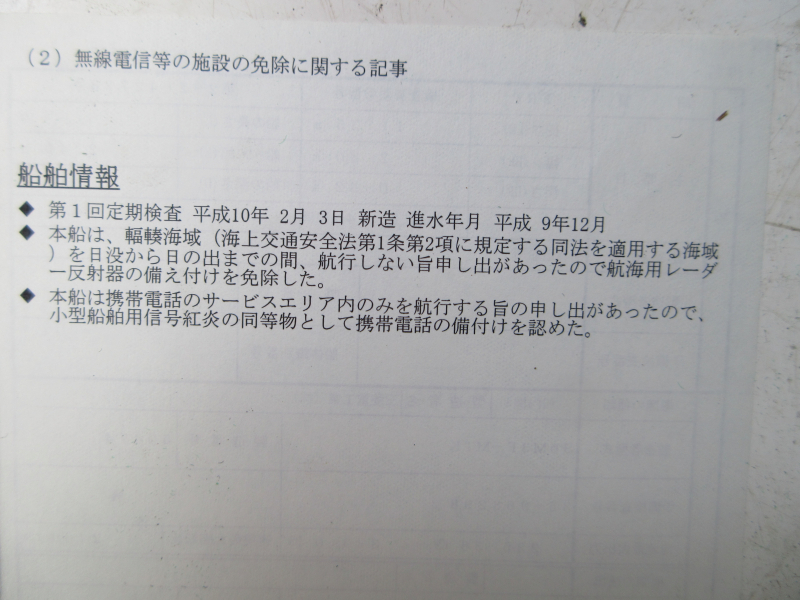 （２）無線電信等の施設の免除に関する記事
船舶情報
◆ 第１回定期検査 平成10年 2月 3日 新造 進水年月 平成 9年12月
◆ 本船は、輻輳海域（海上交通安全法第1条第2項に規定する同法を適用する海域
）を日没から日の出までの間、航行しない旨申し出があったので航海用レーダ
ー反射器の備え付けを免除した。
◆ 本船は携帯電話のサービスエリア内のみを航行する旨の申し出があったので、
小型船舶用信号紅炎の同等物として携帯電話の備付けを認めた。